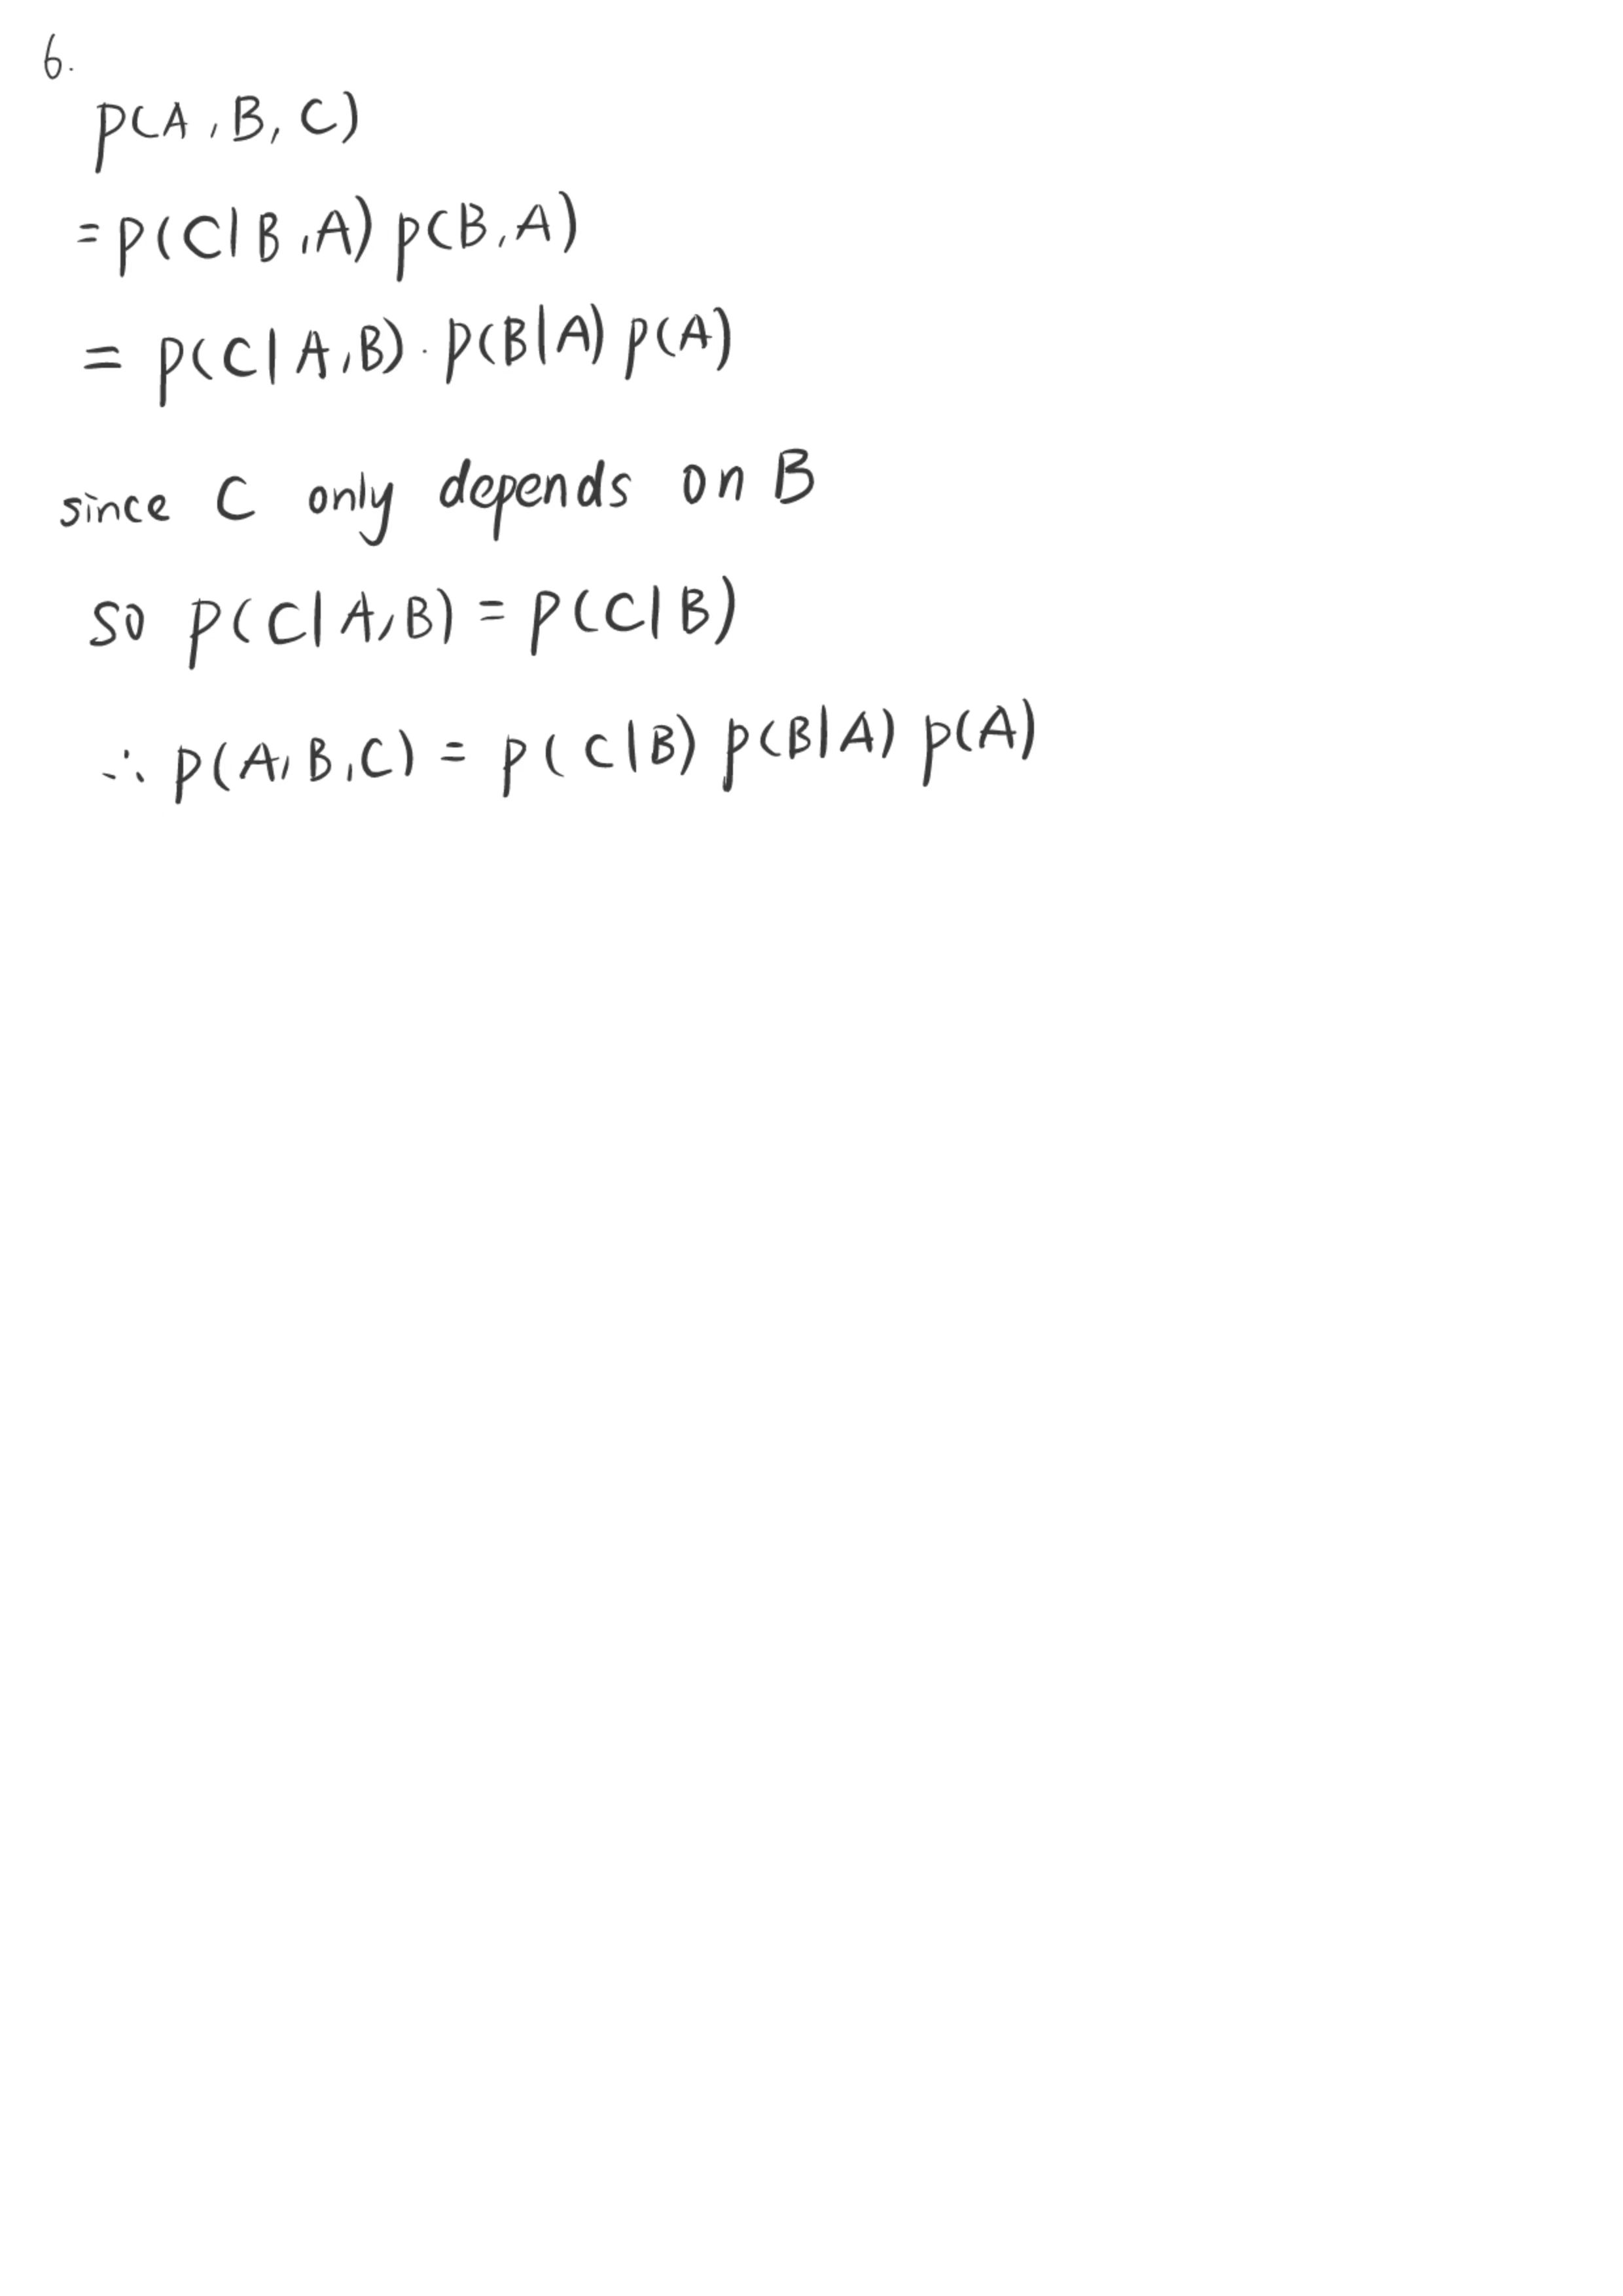 6.
p(A, B, C)
= p(C|B, A) p(B, A)
= p(C|A, B) · p(B|A) p(A)
since C only depends on B
so p(C|A, B) = p(C|B)
∴ p(A, B, C) = p(C|B) p(B|A) p(A)